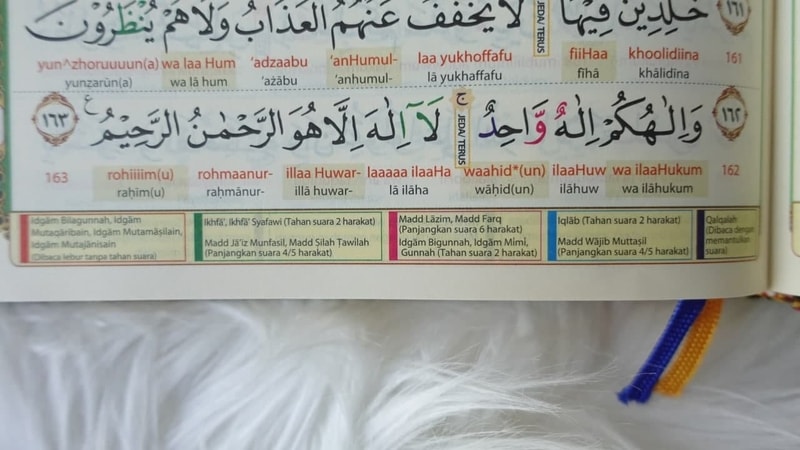 خٰلِدِيْنَ فِيْهَا JEDA/ TERUS لَا يُخَفَّفُ عَنْهُمُ الْعَذَابُ وَلَا هُمْ يُنْظَرُوْنَ
١٦١
yun^zhoruuuun(a) wa laa Hum 'adzaabu 'anHumul- laa yukhoffafu fiiHaa khoolidiina 161
yunẓarūn(a) wa lā hum 'ażābu 'anhumul- lā yukhaffafu fīhā khālidīna
١٦٢ وَاِلٰهُكُمْ اِلٰهٌ وَّاحِدٌۚ JEDA/ TERUS لَآ اِلٰهَ اِلَّا هُوَ الرَّحْمٰنُ الرَّحِيْمُ ࣖ ١٦٣
163 rohiiiim(u) rohmaanur- illaa Huwar- laaaaa ilaaHa waahid*(un) ilaaHuw wa ilaaHukum 162
raḥīm(u) raḥmānur- illā huwar- lā ilāha wāḥid(un) ilāhuw wa ilāhukum
Idgām Bilagunnah, Idgām
Mutaqāribain, Idgām Mutamāṡilain,
Idgām Mutajānisain
(Dibaca lebur tanpa tahan suara)
Ikhfā', Ikhfā' Syafawi (Tahan suara 2 harakat)
Madd Jā'iz Munfasil, Madd Ṣilah Ṭawīlah
(Panjangkan suara 4/5 harakat)
Madd Lāzim, Madd Farq
(Panjangkan suara 6 harakat)
Idgām Bigunnah, Idgām Mimi,
Gunnah (Tahan suara 2 harakat)
Iqlāb (Tahan suara 2 harakat)
Madd Wājib Muttaṣil
(Panjangkan suara 4/5 harakat)
Qalqalah
(Dibaca dengan
memantulkan
suara)